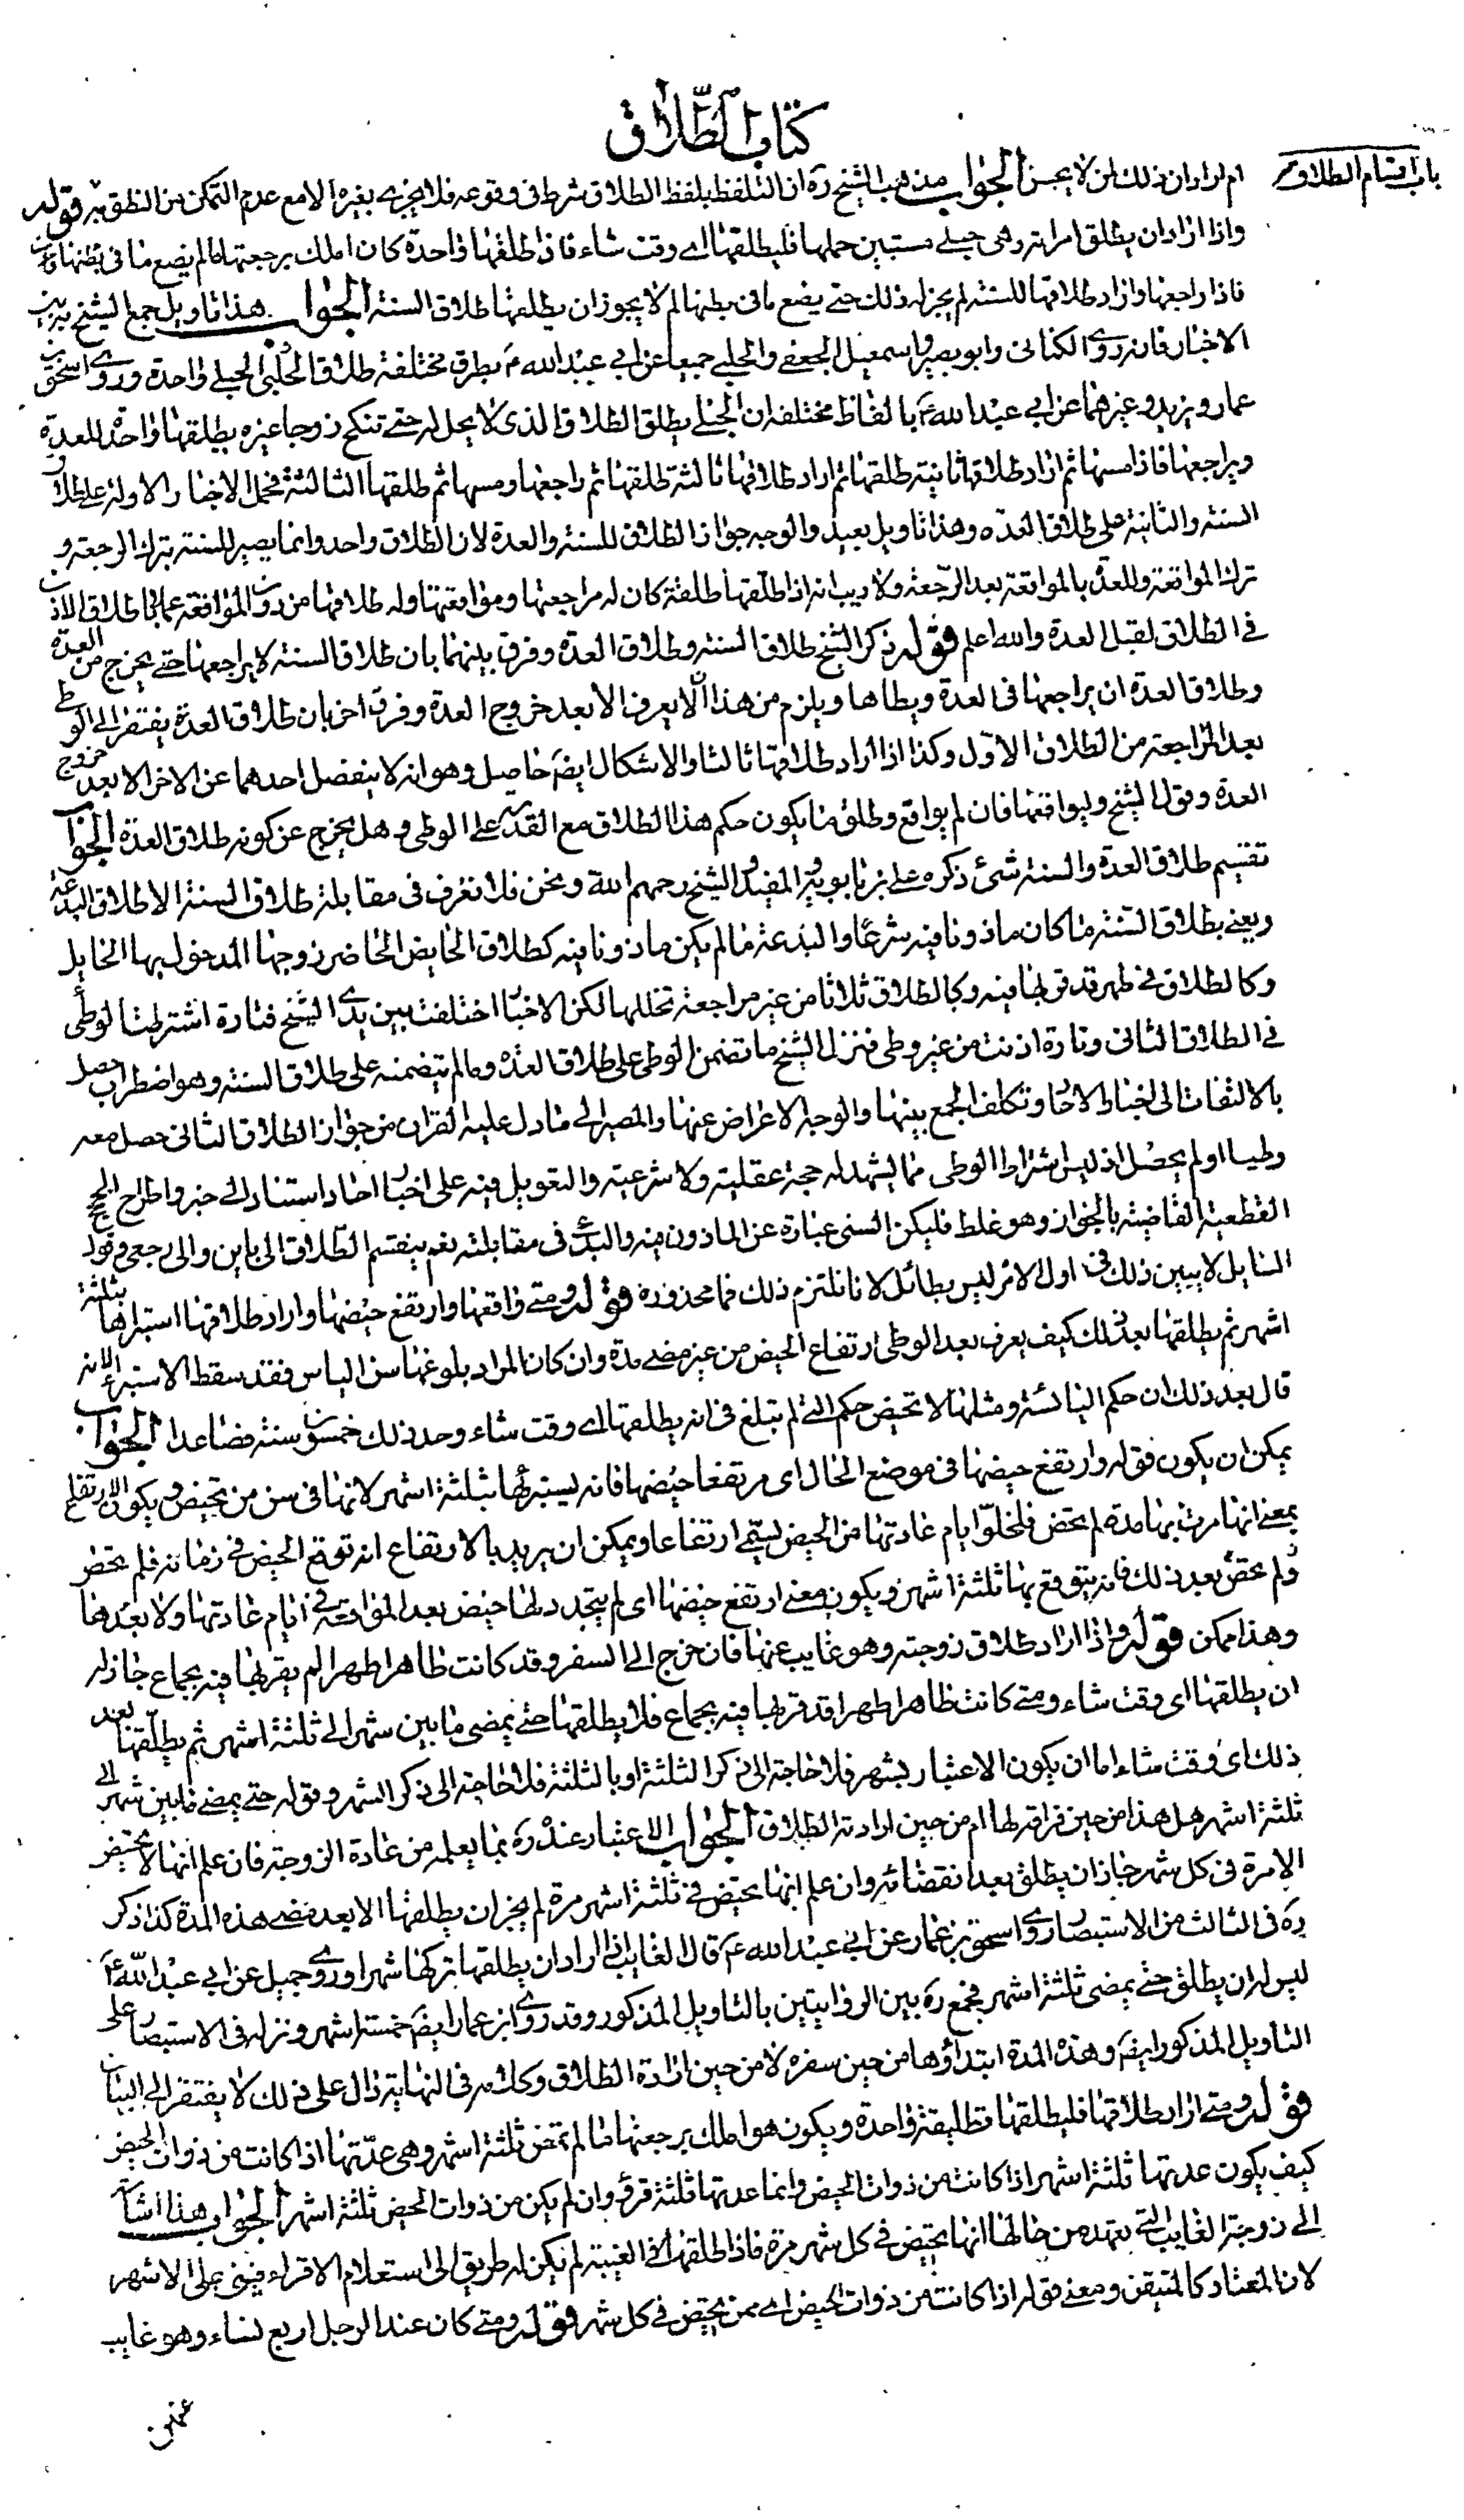 كتاب الطلاق
باب اقسام الطلاق
ام لو اراد ان ذلك لمن لا يحسن الجواب مذهب الشيخ ره ان التلفظ بلفظ الطلاق شرط فى وقوعه فلا يجزى بغيره الا مع عدم التمكن من النطق به قوله
واذا اراد ان يطلق امراته وهى حبلى مستبين حملها فليطلقها اى وقت شاء فاذا طلقها واحدة كان املك برجعتها ما لم يضع ما فى بطنها
فاذا راجعها واراد طلاقها للسنة لم يجز له ذلك حتى يضع ما فى بطنها لم لا يجوز ان يطلقها طلاق السنة الجواب هذا تاويل جمع الشيخ به بين
الاخبار فانه روى الكنانى وابو بصير واسمعيل الجعفى والحلبى جميعا عن ابى عبد الله ع بطرق مختلفة طلاق الحبلى واحدة وروى اسحق بن
عمار ويزيد وغيرهما عن ابى عبد الله ع بالفاظ مختلفة ان الحبلى يطلق الطلاق الذى لا يحل له حتى تنكح زوجا غيره يطلقها واحدة للعدة
ويراجعها فاذا مسها ثم اراد طلاقها ثانية طلقها ثم اراد طلاقها ثالثة طلقها ثم راجعها ومسها ثم طلقها الثالثة فحمل الاخبار الاولة على طلاق
السنة والثانية على طلاق العدة وهذا تاويل بعيد والوجه جواز الطلاق للسنة والعدة لان الطلاق واحد وانما يصير للسنة بترك الرجعة و
ترك المواقعة وللعدة بالمواقعة بعد الرجعة ولا ريب انه اذا طلقها طلقة كان له مراجعتها ومواقعتها وله طلاقها من دون المواقعة عملا باطلاق الاذن
فى الطلاق لقبل العدة والله اعلم قوله ذكر الشيخ طلاق السنة وطلاق العدة وفرق بينهما بان طلاق السنة لا يراجعها حتى يخرج من العدة
وطلاق العدة ان يراجعها فى العدة ويطاها ويلزم من هذا الا يعرف الا بعد خروج العدة وفرق اخر بان طلاق العدة يفتقر الى الوطى
بعد المراجعة من الطلاق الاول وكذا اذا اراد طلاقها ثالثا والاشكال ايضا حاصل وهو انه لا ينفصل احدهما عن الاخر الا بعد خروج
العدة وقول الشيخ ويواقعها فان لم يواقع وطلق ما يكون حكم هذا الطلاق مع القدرة على الوطى وهل يخرج عن كونه طلاق العدة الجواب
تقسيم طلاق العدة والسنة شئ ذكره على بن بابويه والمفيد والشيخ رحمهم الله ونحن فلا نعرف فى مقابلة طلاق السنة الا طلاق البدعة
ويعنى بطلاق السنة ما كان ماذونا فيه شرعا والبدعة ما لم يكن ماذونا فيه كطلاق الحايض الحاضر زوجها المدخول بها الحايل
وكالطلاق فى طهر قد قربها فيه وكالطلاق ثلاثا من غير مراجعة تخللها لكن الاخبار اختلفت بين يدى الشيخ فتارة اشترطت الوطى
فى الطلاق الثانى وتارة اذنت من غير وطى فنزل الشيخ ما تضمن الوطى على طلاق العدة وما لم يتضمنه على طلاق السنة وهو اضطراب حصل
بالالتفات الى اخبار الاحاد وتكلف الجمع بينها والوجه الاعراض عنها والمصير الى ما دل عليه القران من جواز الطلاق الثانى حصل معه
وطيا او لم يحصل اذ ليس اشتراط الوطى مما يشهد له حجة عقلية ولا شرعية والتعويل فيه على اخبار احاد استناد الى خبر واطراح الحجج
القطعية القاضية بالجواز وهو غلط فليكن السنى عبارة عن الماذون فيه والبدعى فى مقابلته نعم ينقسم الطلاق الى باين والى رجعى وقول
السايل لا يبين ذلك فى اول الامر ليس بطائل لانا نلتزم ذلك فما محذوره قوله ومتى واقعها وارتفع حيضها واراد طلاقها استبراها بثلثة
اشهر ثم يطلقها بعد ذلك كيف يعرف بعد الوطى ارتفاع الحيض من غير مضى مدة وان كان المراد بلوغها سن الياس فقد سقط الاستبراء لانه
قال بعد ذلك ان حكم اليائسة ومثلها لا تحيض حكم التى لم تبلغ فى انه يطلقها اى وقت شاء وحد ذلك خمسون سنة فصاعدا الجواب
يمكن ان يكون قوله وارتفع حيضها فى موضع الحال اى مرتفعا حيضها فانه يستبرئها بثلثة اشهر لانها فى سن من تحيض ويكون الارتفاع
بمعنى انها مرت بها مدة لم تحض فلخلو ايام عادتها من الحيض يسمى ارتفاعا ويمكن ان يريد بالارتفاع انه توقع الحيض فى زمانه فلم تحض
ولم تحض بعد ذلك فانه يتوقع بها ثلثة اشهر ويكون معنى ارتفع حيضها اى لم يتجدد لها حيض بعد المواقعة فى ايام عادتها ولا بعدها
وهذا ممكن قوله واذا اراد طلاق زوجته وهو غايب عنها فان خرج الى السفر وقد كانت طاهرا طهرا لم يقربها فيه بجماع جاز له
ان يطلقها اى وقت شاء ومتى كانت طاهرا طهرا قد قربها فيه بجماع فلا يطلقها حتى يمضى ما بين شهر الى ثلثة اشهر ثم يطلقها بعد
ذلك اى وقت شاء اما ان يكون الاعتبار بشهر فلا حاجة الى ذكر الثلثة او بالثلثة فلا حاجة الى ذكر الشهر وقوله حتى يمضى ما بين شهر الى
ثلثة اشهر هل هذا من حين فراقه لها ام من حين ارادته الطلاق الجواب الاعتبار عنده ره بما يعلمه من عادة الزوجة فان علم انها لا تحيض
الا مرة فى كل شهر جاز ان يطلق بعد انقضائه وان علم انها تحيض فى ثلثة اشهر مرة لم يجز ان يطلقها الا بعد مضى هذه المدة كذا ذكر
ره فى الثالث من الاستبصار وروى اسحق بن عمار عن ابى عبد الله ع قال الغايب اذا اراد ان يطلقها تركها شهرا وروى جميل عن ابى عبد الله ع
ليس له ان يطلق حتى يمضى ثلثة اشهر فجمع ره بين الروايتين بالتاويل المذكور وقد روى ابن عمار ايضا خمسة اشهر ونزله فى الاستبصار على
التاويل المذكور ايضا وهذه المدة ابتداؤها من حين سفره لا من حين ارادة الطلاق وكلامه فى النهاية دال على ذلك لا يفتقر الى البيان
قوله ومتى اراد طلاقها فليطلقها تطليقة واحدة ويكون هو املك برجعتها ما لم تمض ثلثة اشهر وهى عدتها اذا كانت من ذوات الحيض
كيف يكون عدتها ثلثة اشهر اذا كانت من ذوات الحيض وانما عدتها ثلثة قروء وان لم يكن من ذوات الحيض ثلثة اشهر الجواب هذا اشارة
الى زوجة الغايب التى يعهد من حالها انها تحيض فى كل شهر مرة فاذا طلقها فى الغيبة لم يكن له طريق الى استعلام الاقراء فيبنى على الاشهر
لان المعتاد كالمتيقن ومعنى قوله اذا كانت من ذوات الحيض اى ممن تحيض فى كل شهر قوله ومتى كان عند الرجل اربع نساء وهو غايب
عنهن